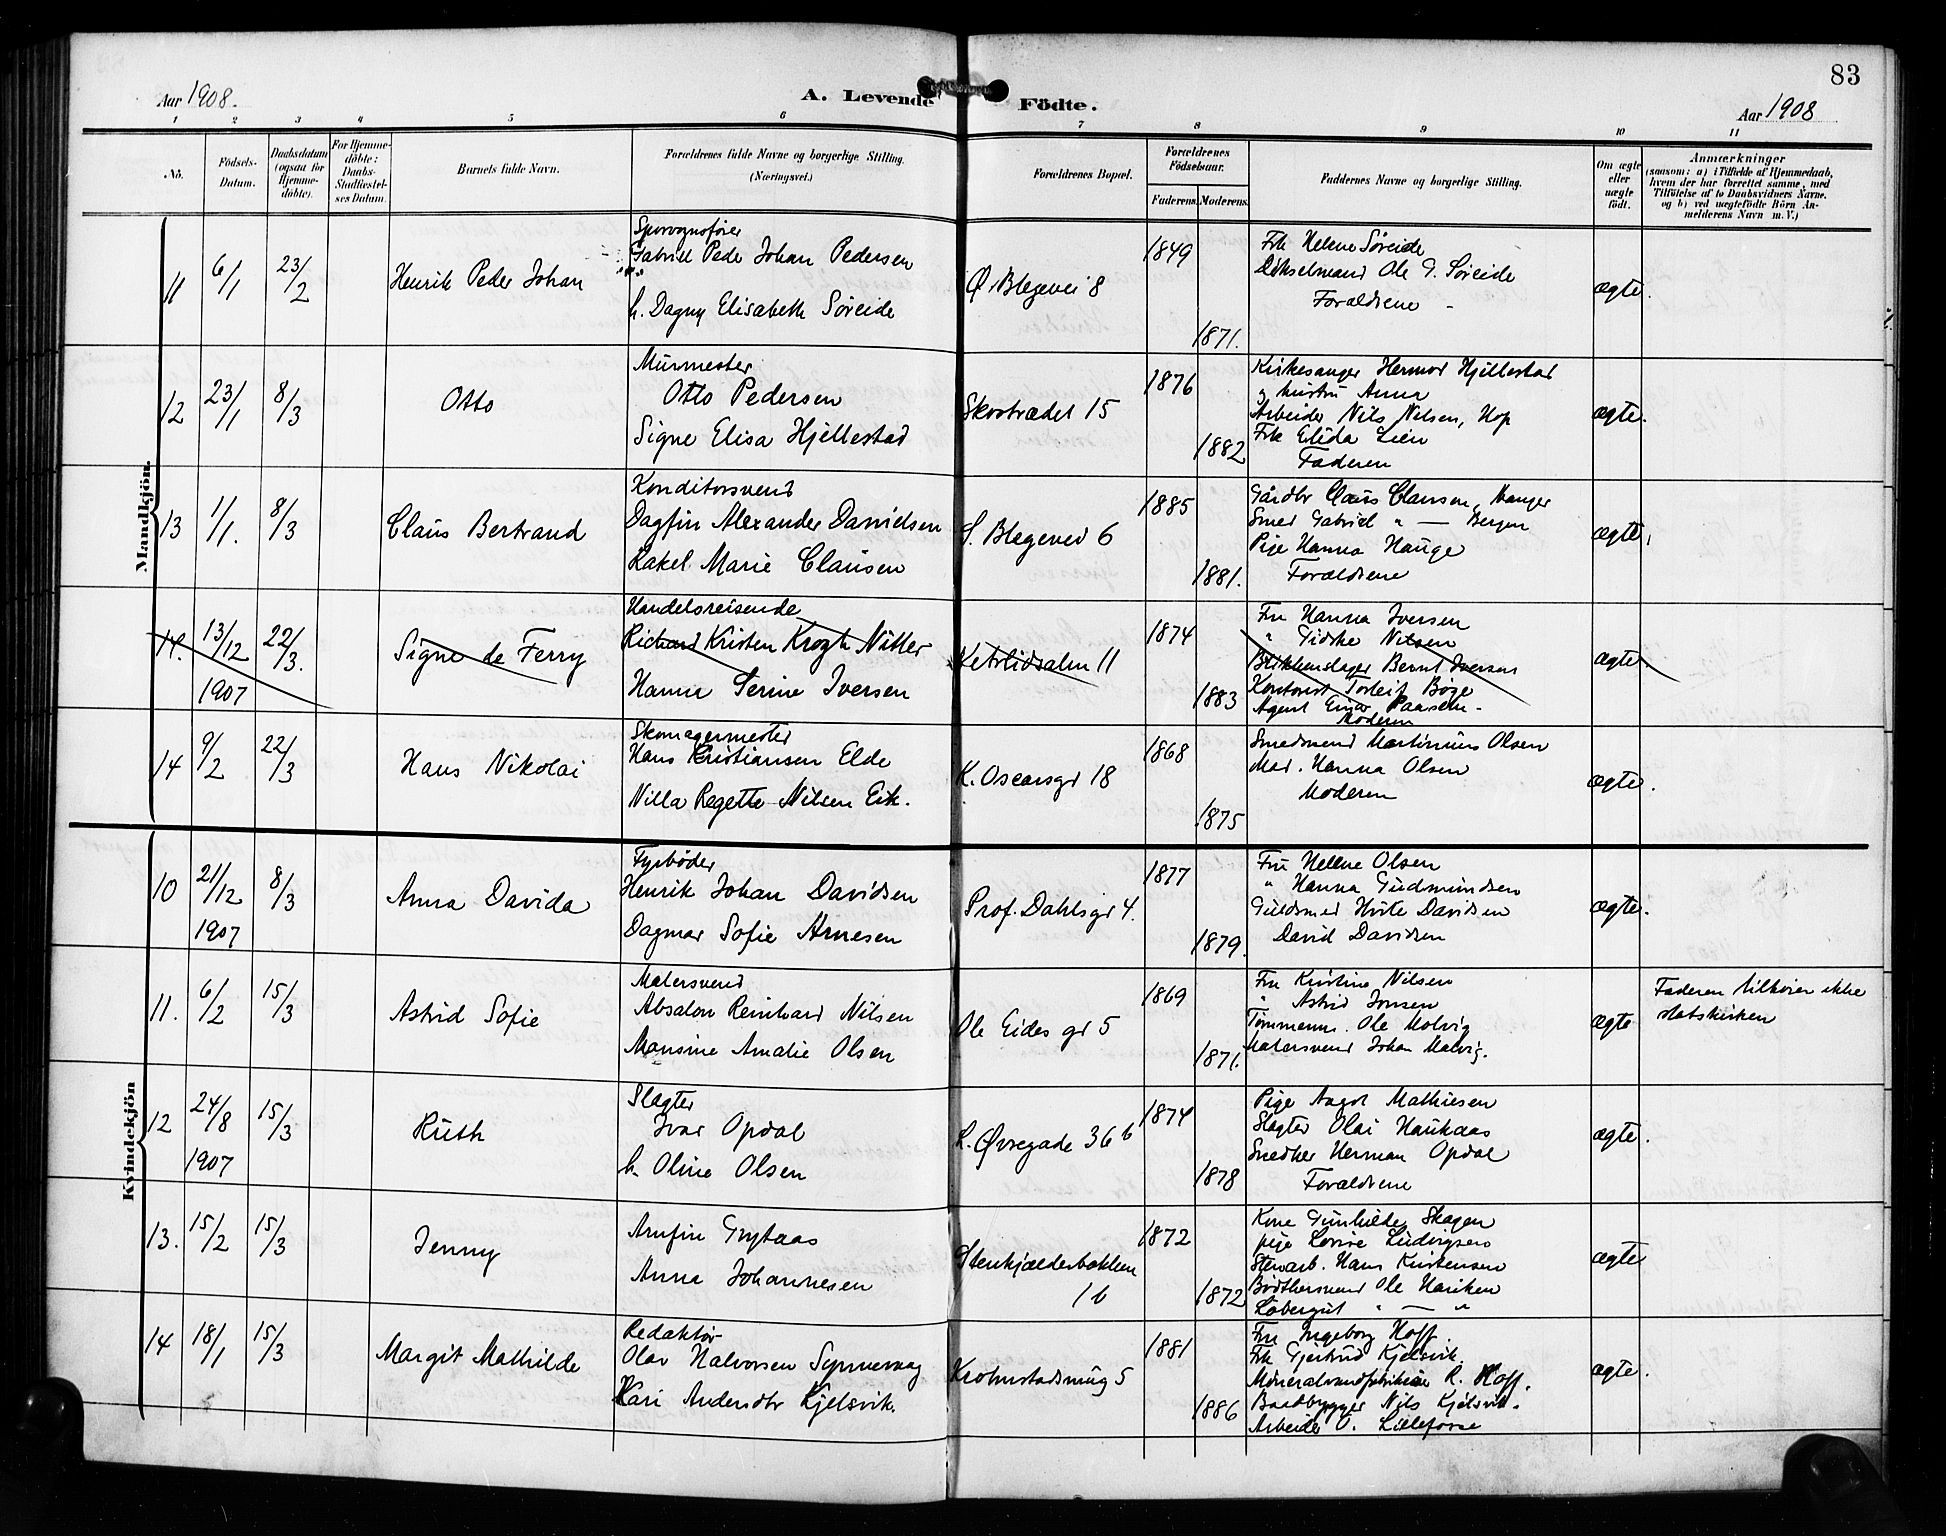 83
Aar 1908.
A. Levende Födte.
Aar 1908
1 2 3 4 5 6 7 8 9 10 11
Nö.
Födsels-Datum.
Daabsdatum (ogsaa for Hjemme-döbte).
For Hjemme-döbte: Daabs-Stadfæstel-ses Datum.
Barnets fulde Navn.
Forældrenes fulde Navne og borgerlige Stilling. (Næringsvei.)
Forældrenes Bopæl.
Forældrenes Födselsaar.
Faderens. Moderens.
Faddernes Navne og borgerlige Stilling.
Om ægte eller uægte födt.
Anmærkninger
(saasom: a) i Tilfælde af Hjemmedaab,
hvem der har forrettet samme, med
Tilföielse af to Daabsvidners Navne,
og b) ved uægtefödte Börn An-
melderens Navn m. V.)
Mandkjön.
11 6/1 23/2 Henrik Peder Johan
Sporvognsfører
Gabriel Peder Johan Pedersen
h. Dagny Elisabeth Søreide
Ø. Blegevei 8
1849
1871.
Frk Helene Søreide
Ole G. Søreide
Forældrene
ægte.
12 23/1 8/3 Otto
Murmester
Otto Pedersen
Signe Elisa Hjellestad
Skostrædet 15
1876
1882
Kirkesanger Hermod Hjellestad
g hustru Anna
Arbeider Nils Nilsen, Hop
Frk Elida Lien
Faderen
ægte.
13 1/1. 8/3 Claus Bertrand
Konditorsvend
Dagfin Alexander Davidsen
Rakel Marie Clausen
S. Blegevei 6
1885
1881.
Gårdbr Claus Clausen, Manger
Smed Gabriel " — Bergen
Pige Hanna Hauge
Forældrene
ægte.
14. 13/12 1907 22/3. Signe de Ferry
Handelsreisende
Richard Kristen Krogh Nitter
Hanna Serine Iversen
11
1874
1883
Fru Hanna Iversen
" Gidske Nilsen
Blikkenslager Bernt Iversen
Kontorist Torleif Bøge
Agent Einar Paasche
Moderen
ægte
14 9/2 22/3 Hans Nikolai
Skomagermester
Hans Kristiansen Elde
Villa Regette Nilsen Eik.
K. Oscarsgd 18
1868
1875
Smedsvend Martinius Olsen
Mad. Hanna Olsen
Moderen
ægte.
Kvindekjön
10 21/12 1907 8/3 Anna Davida
Fyrbøder
Henrik Johan Davidsen
Dagmar Sofie Arnesen
Prof. Dahlsgd 4.
1877
1879.
Fru Helene Olsen
" Hanna Gudmundsen
Guldsmed Hvite Davidsen
David Davidsen
ægte.
11. 6/2 15/3 Astrid Sofie
Malersvend
Absalon Reinhard Nilsen
Monsine Amalie Olsen
Ole Eides gd 5
1869
1871.
Fru Kristine Nilsen
" Astrid Jonsen
Tømmerm. Ole Molvig
Malersvend Johan Molvig.
ægte
Faderen tilhører ikke
statskirken
12 24/8 1907 15/3 Ruth
Slagter
Ivar Opdal
h. Oline Olsen
L. Øvregade 36 b
1874
1878
Pige Aagot Mathiesen
Slagter Olai Haukaas
Snedker Herman Opdal
Forældrene
ægte.
13. 15/2 15/3 Jenny
Arnfin Grytaas
Anna Johannesen
Stenkjælderbakken
1 b
1872
1872
Kone Gunhilde Skagen
pige Lovise Ludvigsen
Stenarb. Hans Kristensen
Bødkersvend Ole Hauken
Løbergut " — "
ægte
14 18/1 15/3 Margit Mathilde
Redaktør
Olav Halvorsen Synnevaag
Kari Andersdtr Kjelsvik.
Krohnstadsmug 5
1881
1886
Fru Ingeborg Hoff.
Frk Gjertrud Kjelsvik.
Mineralvandfabrikør R. Hoff.
Baadbygger Nils Kjelsvik.
Arbeider O. Lillefosse
ægte.